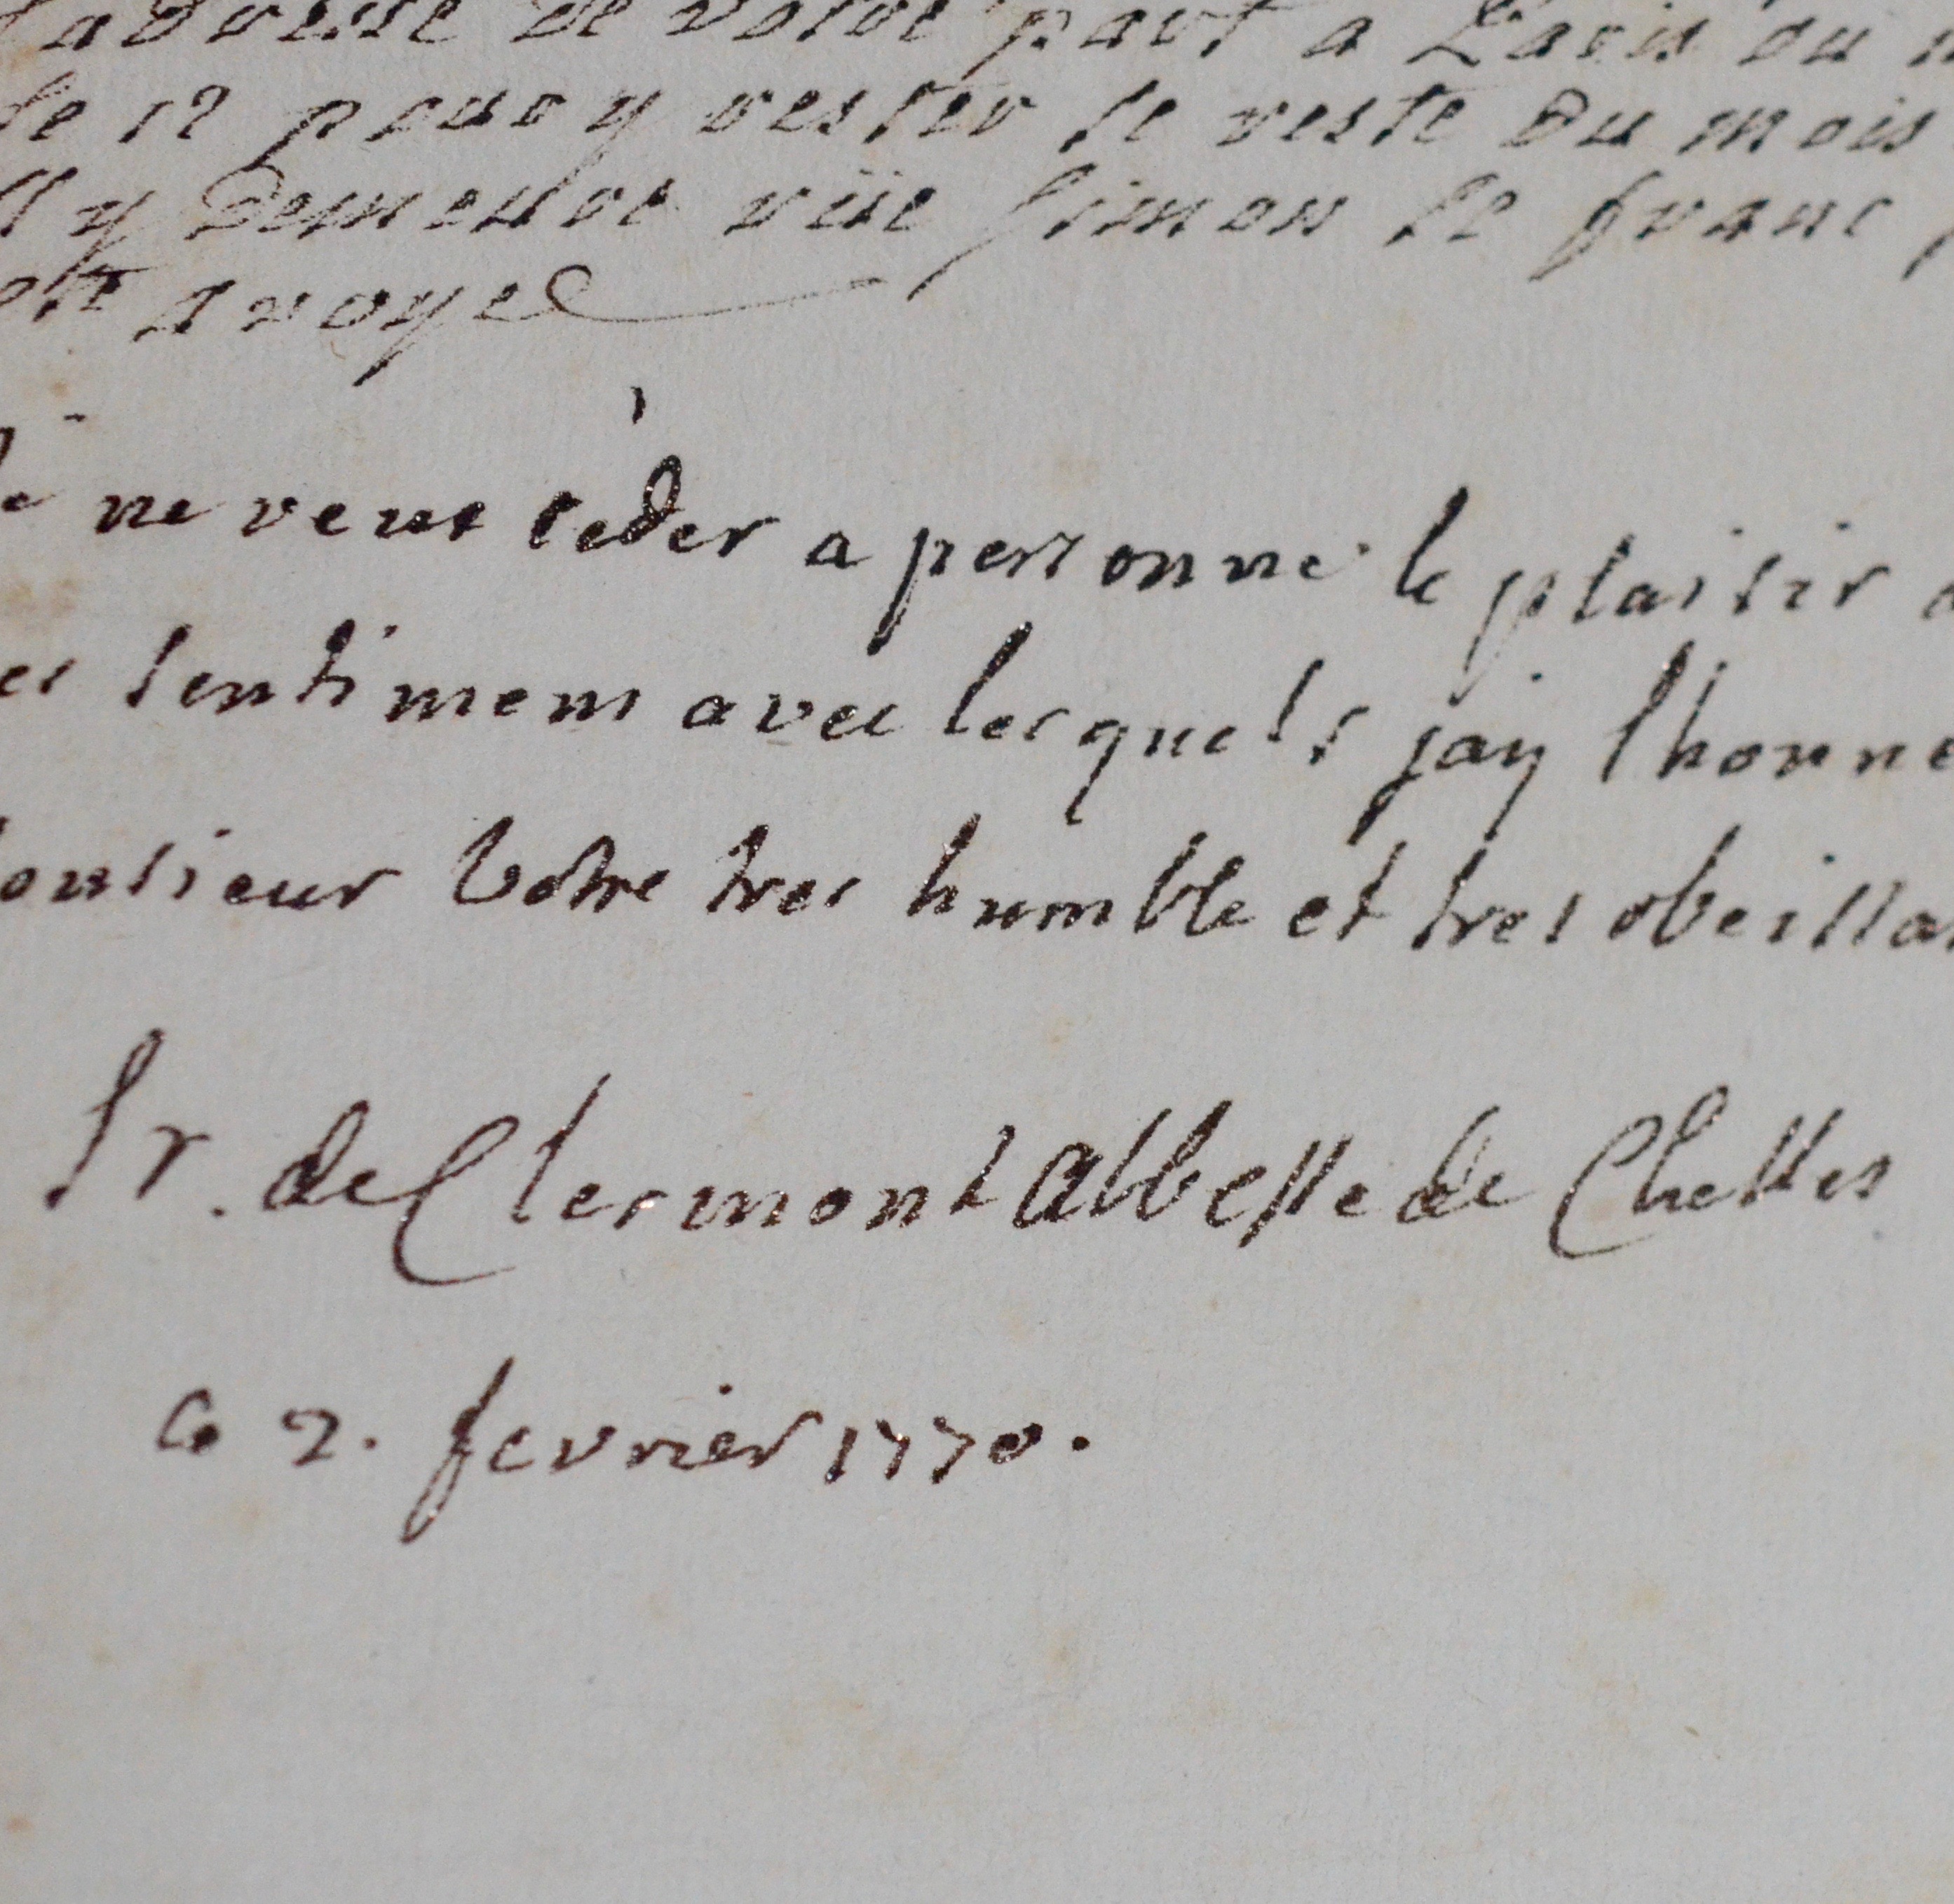 ladresse de votre part a Paris ou
le 12 pour y rester le reste du mois
Il y demeure rüe Simon le franc
ste avoye
Je ne veux ceder a personne le plaisir
sentimens avec lesquels jay lhonne
onsieur votre tres humble et tres obeissan
Sr. de Clermont abbesse de Chelles
ce 2. fevrier 1770.